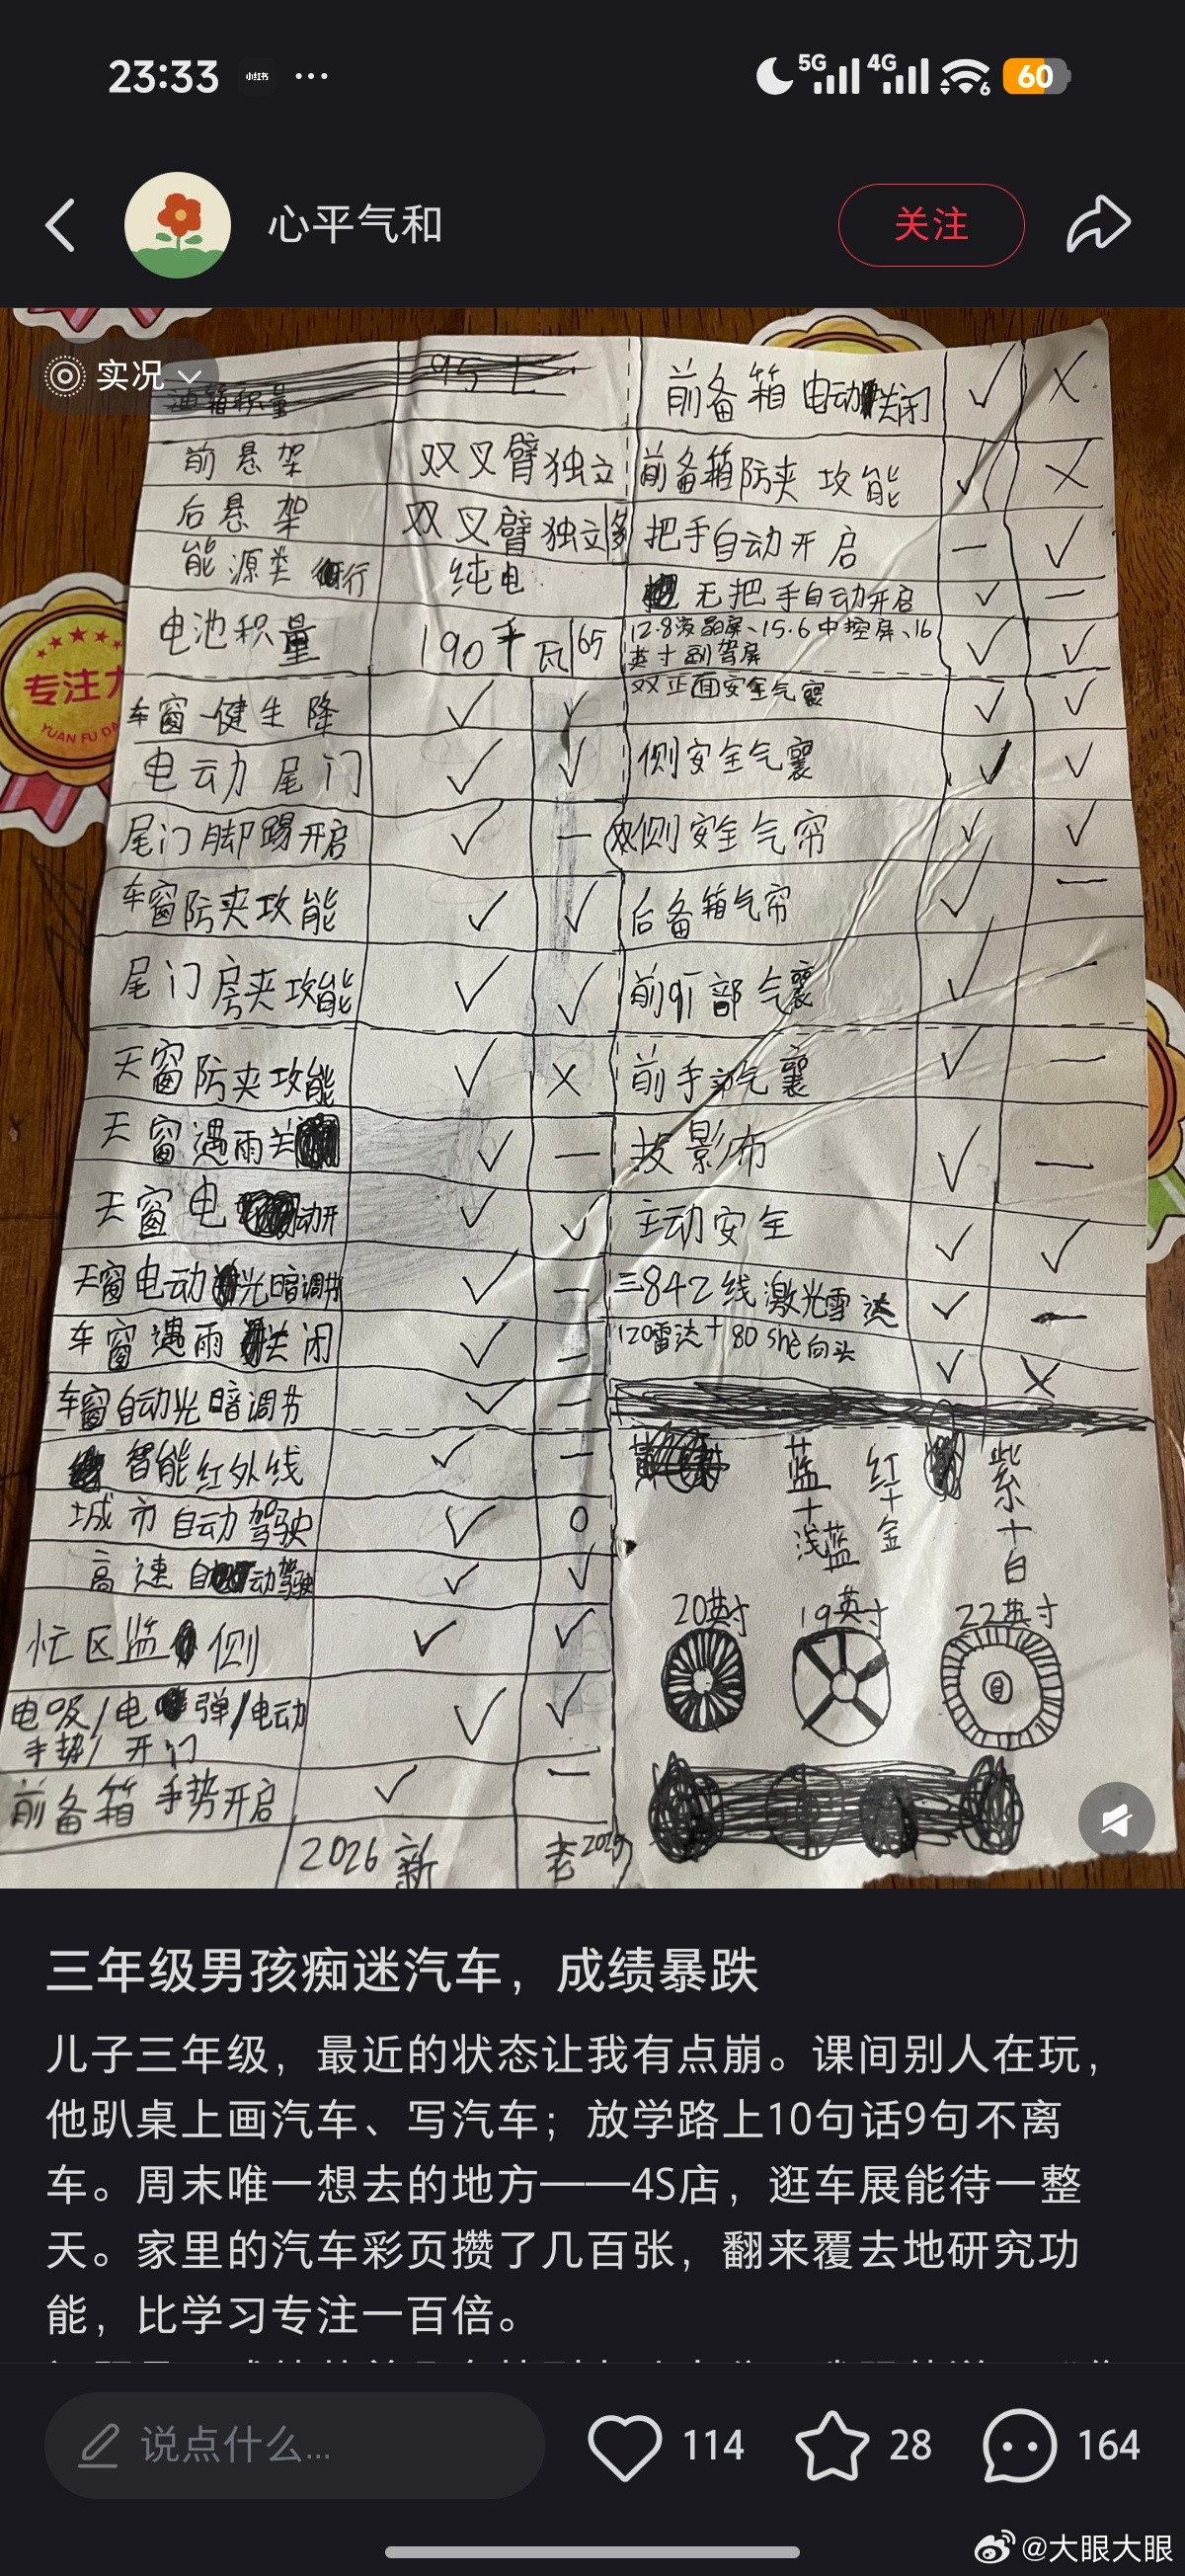 23:33
小红书
5G
4G
6
60
心平气和
关注
实况
油箱积量 95 L
前悬架 双叉臂独立
后悬架 双叉臂独立|多
能源类行 纯电
电池积量 190千瓦|65
车窗一健生降 ✓ ✓
电动尾门 ✓ ✓
尾门脚踢开启 ✓ —
车窗防夹攻能 ✓ ✓
尾门房夹攻能 ✓ ✓
天窗防夹攻能 ✓ ×
天窗遇雨关 ✓ —
天窗电动开 ✓ ✓
天窗电动光暗调节 ✓ —
车窗遇雨关闭 ✓ —
车窗自动光暗调节 ✓ —
智能红外线 ✓ —
城市自动驾驶 ✓ O
高速自动驾驶 ✓ ✓
忙区监侧 ✓ ✓
电吸/电弹/电动 ✓ ✓
手势/开门
前备箱手势开启 ✓ —
2026新 老2025
前备箱电动关闭 ✓ ×
前备箱防夹攻能 ✓ ×
把手自动开启 — ✓
无把手自动开启 ✓ —
12.8液晶屏、15.6中控屏、16
英寸副驾屏 ✓ ✓
双正面安全气襄 ✓ ✓
侧安全气襄 ✓ ✓
双侧安全气帘 ✓ ✓
后备箱气帘 ✓ —
前部气襄 ✓ —
前手气襄 ✓ —
投影布 ✓ —
主动安全 ✓ ✓
三842线激光雷达 ✓ —
120雷达+80 she向头 ✓ ×
蓝+浅蓝
红+金
紫+白
20英寸 19英寸 22英寸
专注力
YUAN FU DA
三年级男孩痴迷汽车，成绩暴跌
儿子三年级，最近的状态让我有点崩。课间别人在玩，
他趴桌上画汽车、写汽车；放学路上10句话9句不离
车。周末唯一想去的地方——4S店，逛车展能待一整
天。家里的汽车彩页攒了几百张，翻来覆去地研究功
能，比学习专注一百倍。
说点什么...
114
28
164
@大眼大眼